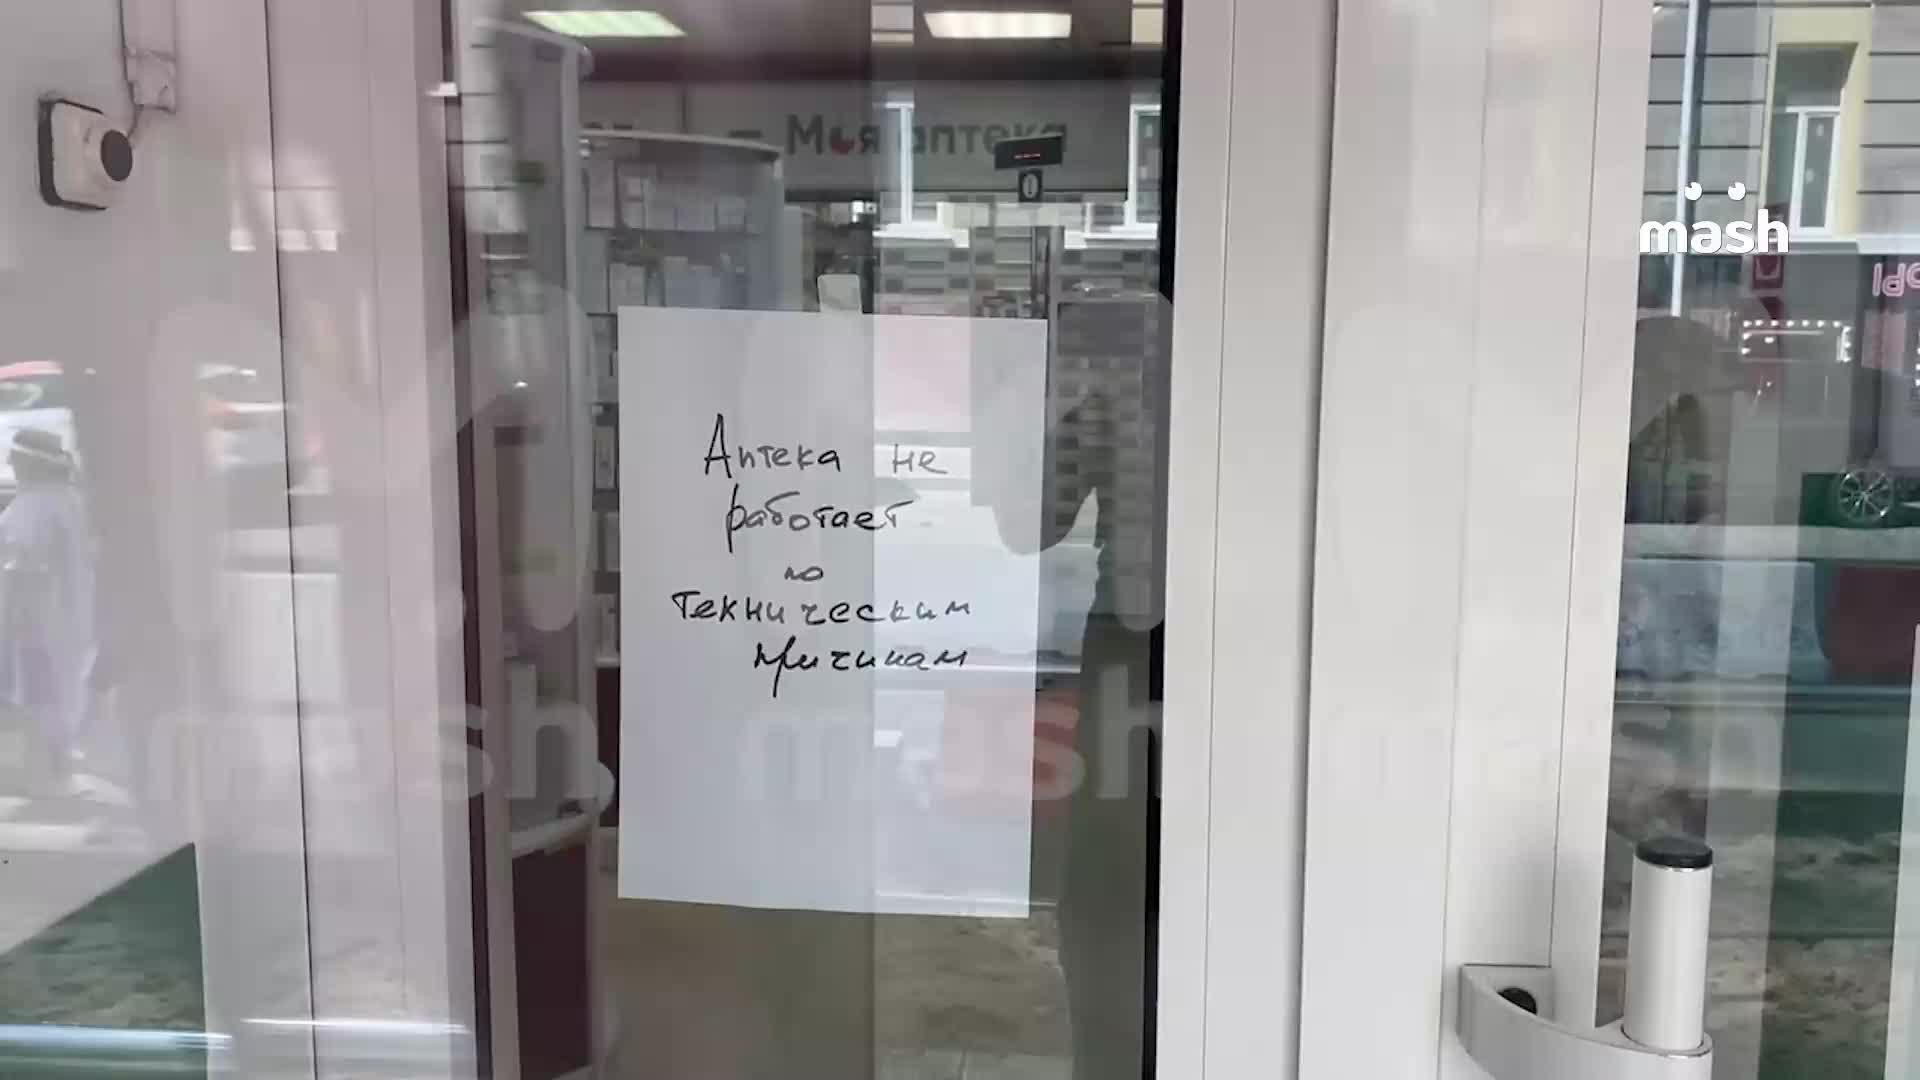 Моя аптека
mash
Аптека не
работает
по
техническим
причинам
mash
mash